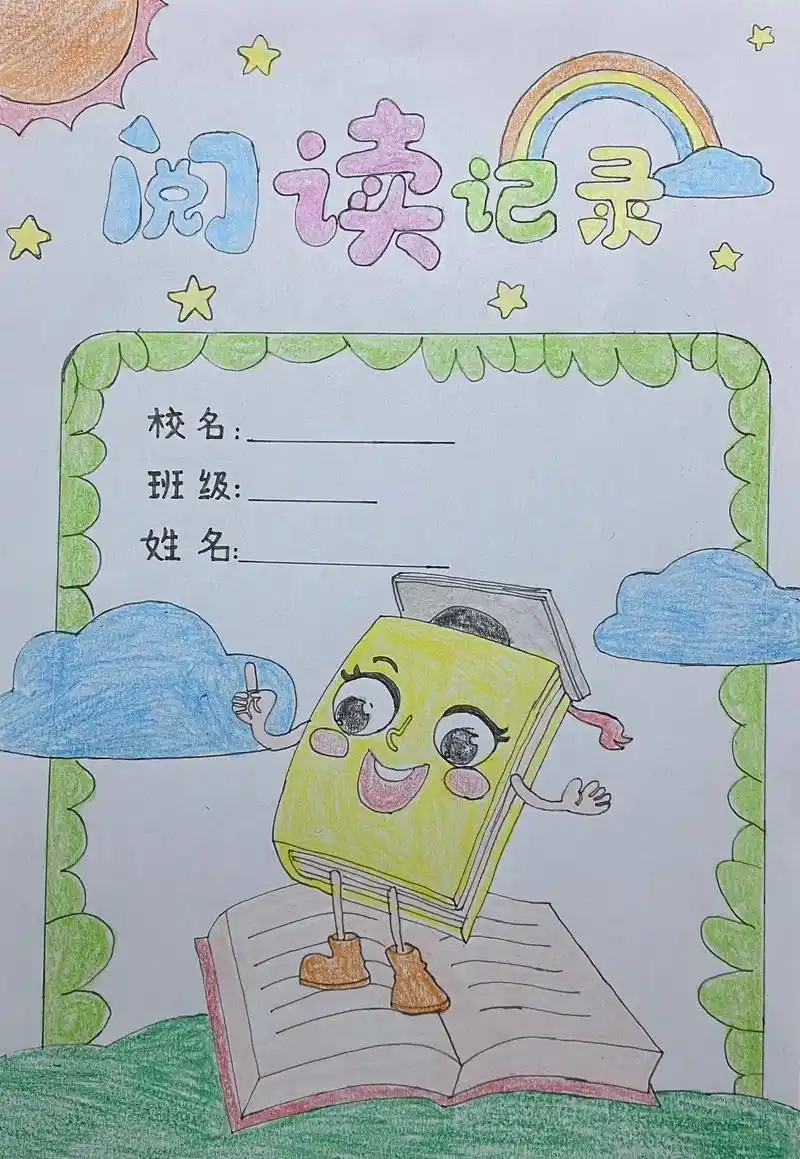 阅读记录
校名:
班级:
姓名: